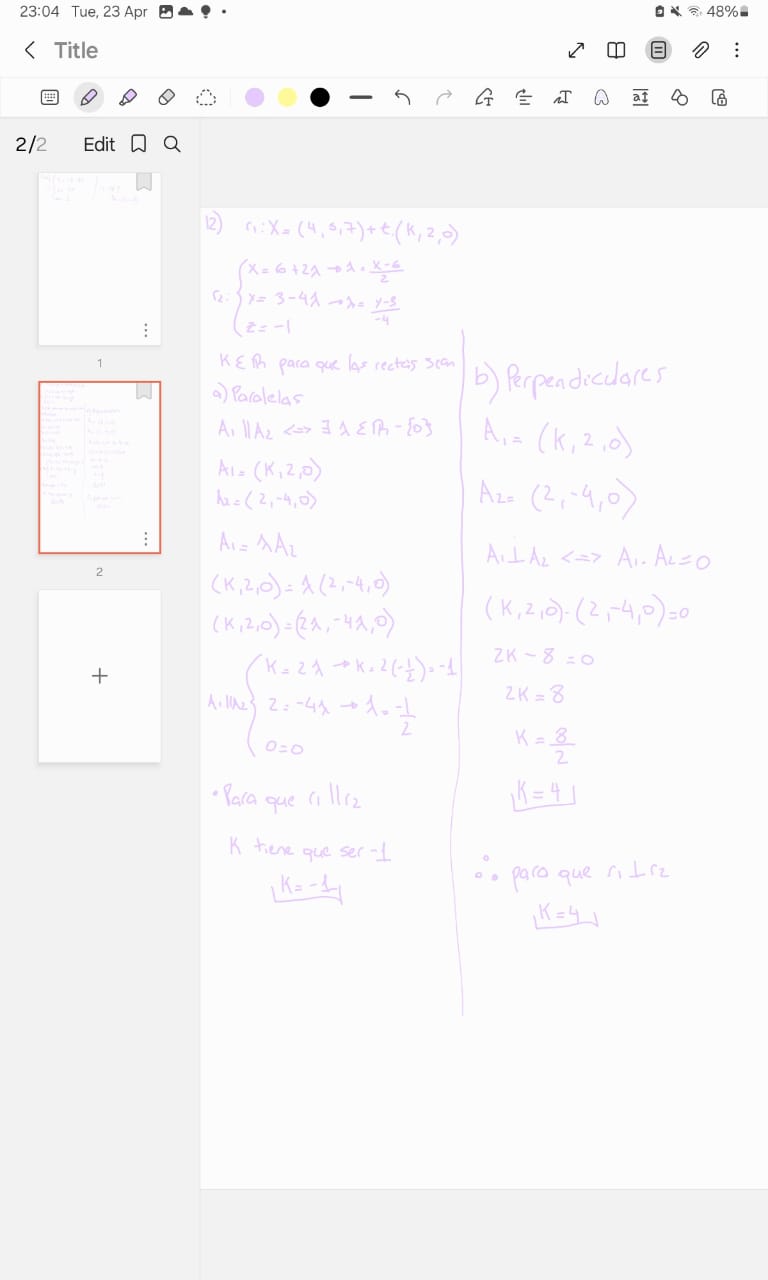 23:04 Tue, 23 Apr • 48%
Title
2/2 Edit
1
2
12) r₁: X = (4,5,7) + t.(K,2,0)
r₂: { X = 6+2λ → λ = x-6/2
Y = 3-4λ → λ = y-3/-4
Z = -1
K ∈ ℝ para que las rectas sean
a) Paralelas
A₁ ∥ A₂ <=> ∃ λ ∈ ℝ - {0}
A₁ = (K,2,0)
A₂ = (2,-4,0)
A₁ = λA₂
(K,2,0) = λ(2,-4,0)
(K,2,0) = (2λ,-4λ,0)
A₁∥A₂ { K = 2λ → K = 2(-1/2) = -1
2 = -4λ → λ = -1/2
0=0
• Para que r₁ ∥ r₂
K tiene que ser -1
K = -1
b) Perpendiculares
A₁ = (K,2,0)
A₂ = (2,-4,0)
A₁ ⊥ A₂ <=> A₁ . A₂ = 0
(K,2,0) . (2,-4,0) = 0
2K - 8 = 0
2K = 8
K = 8/2
K = 4
∴ para que r₁ ⊥ r₂
K = 4